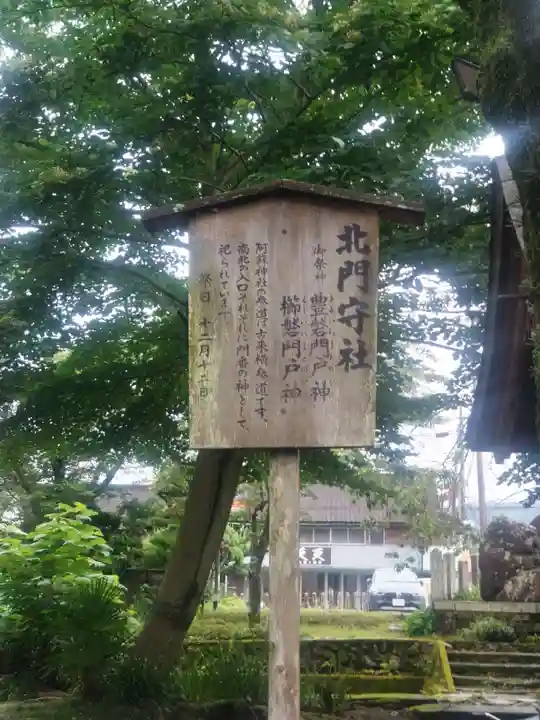 北門守社
御祭神
豊磐門戸神
櫛磐門戸神
阿蘇神社の参道は古来横参道です。
南北の入口それぞれに門番の神として、
祀られています。
祭日 十二月十六日